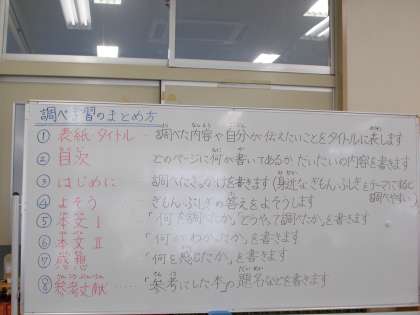 調べ学習のまとめ方
① 表紙 タイトル… 調べた内容や自分が伝えたいことをタイトルに表します
② 目次 どのページに何が書いてあるか だいたいの内容を書きます
③ はじめに 調べたきっかけを書きます(身近なぎもん・ふしぎをテーマにすると
調べやすい)
④ よそう ぎもん・ふしぎの答えをよそうします
⑤ 本文 I …「何を調べたか」「どうやって調べたか」を書きます
⑥ 本文 II 「何がわかったか」を書きます
⑦ 感想 「何を感じたか」を書きます
⑧ 参考文献 ……「参考にした本」の題名などを書きます